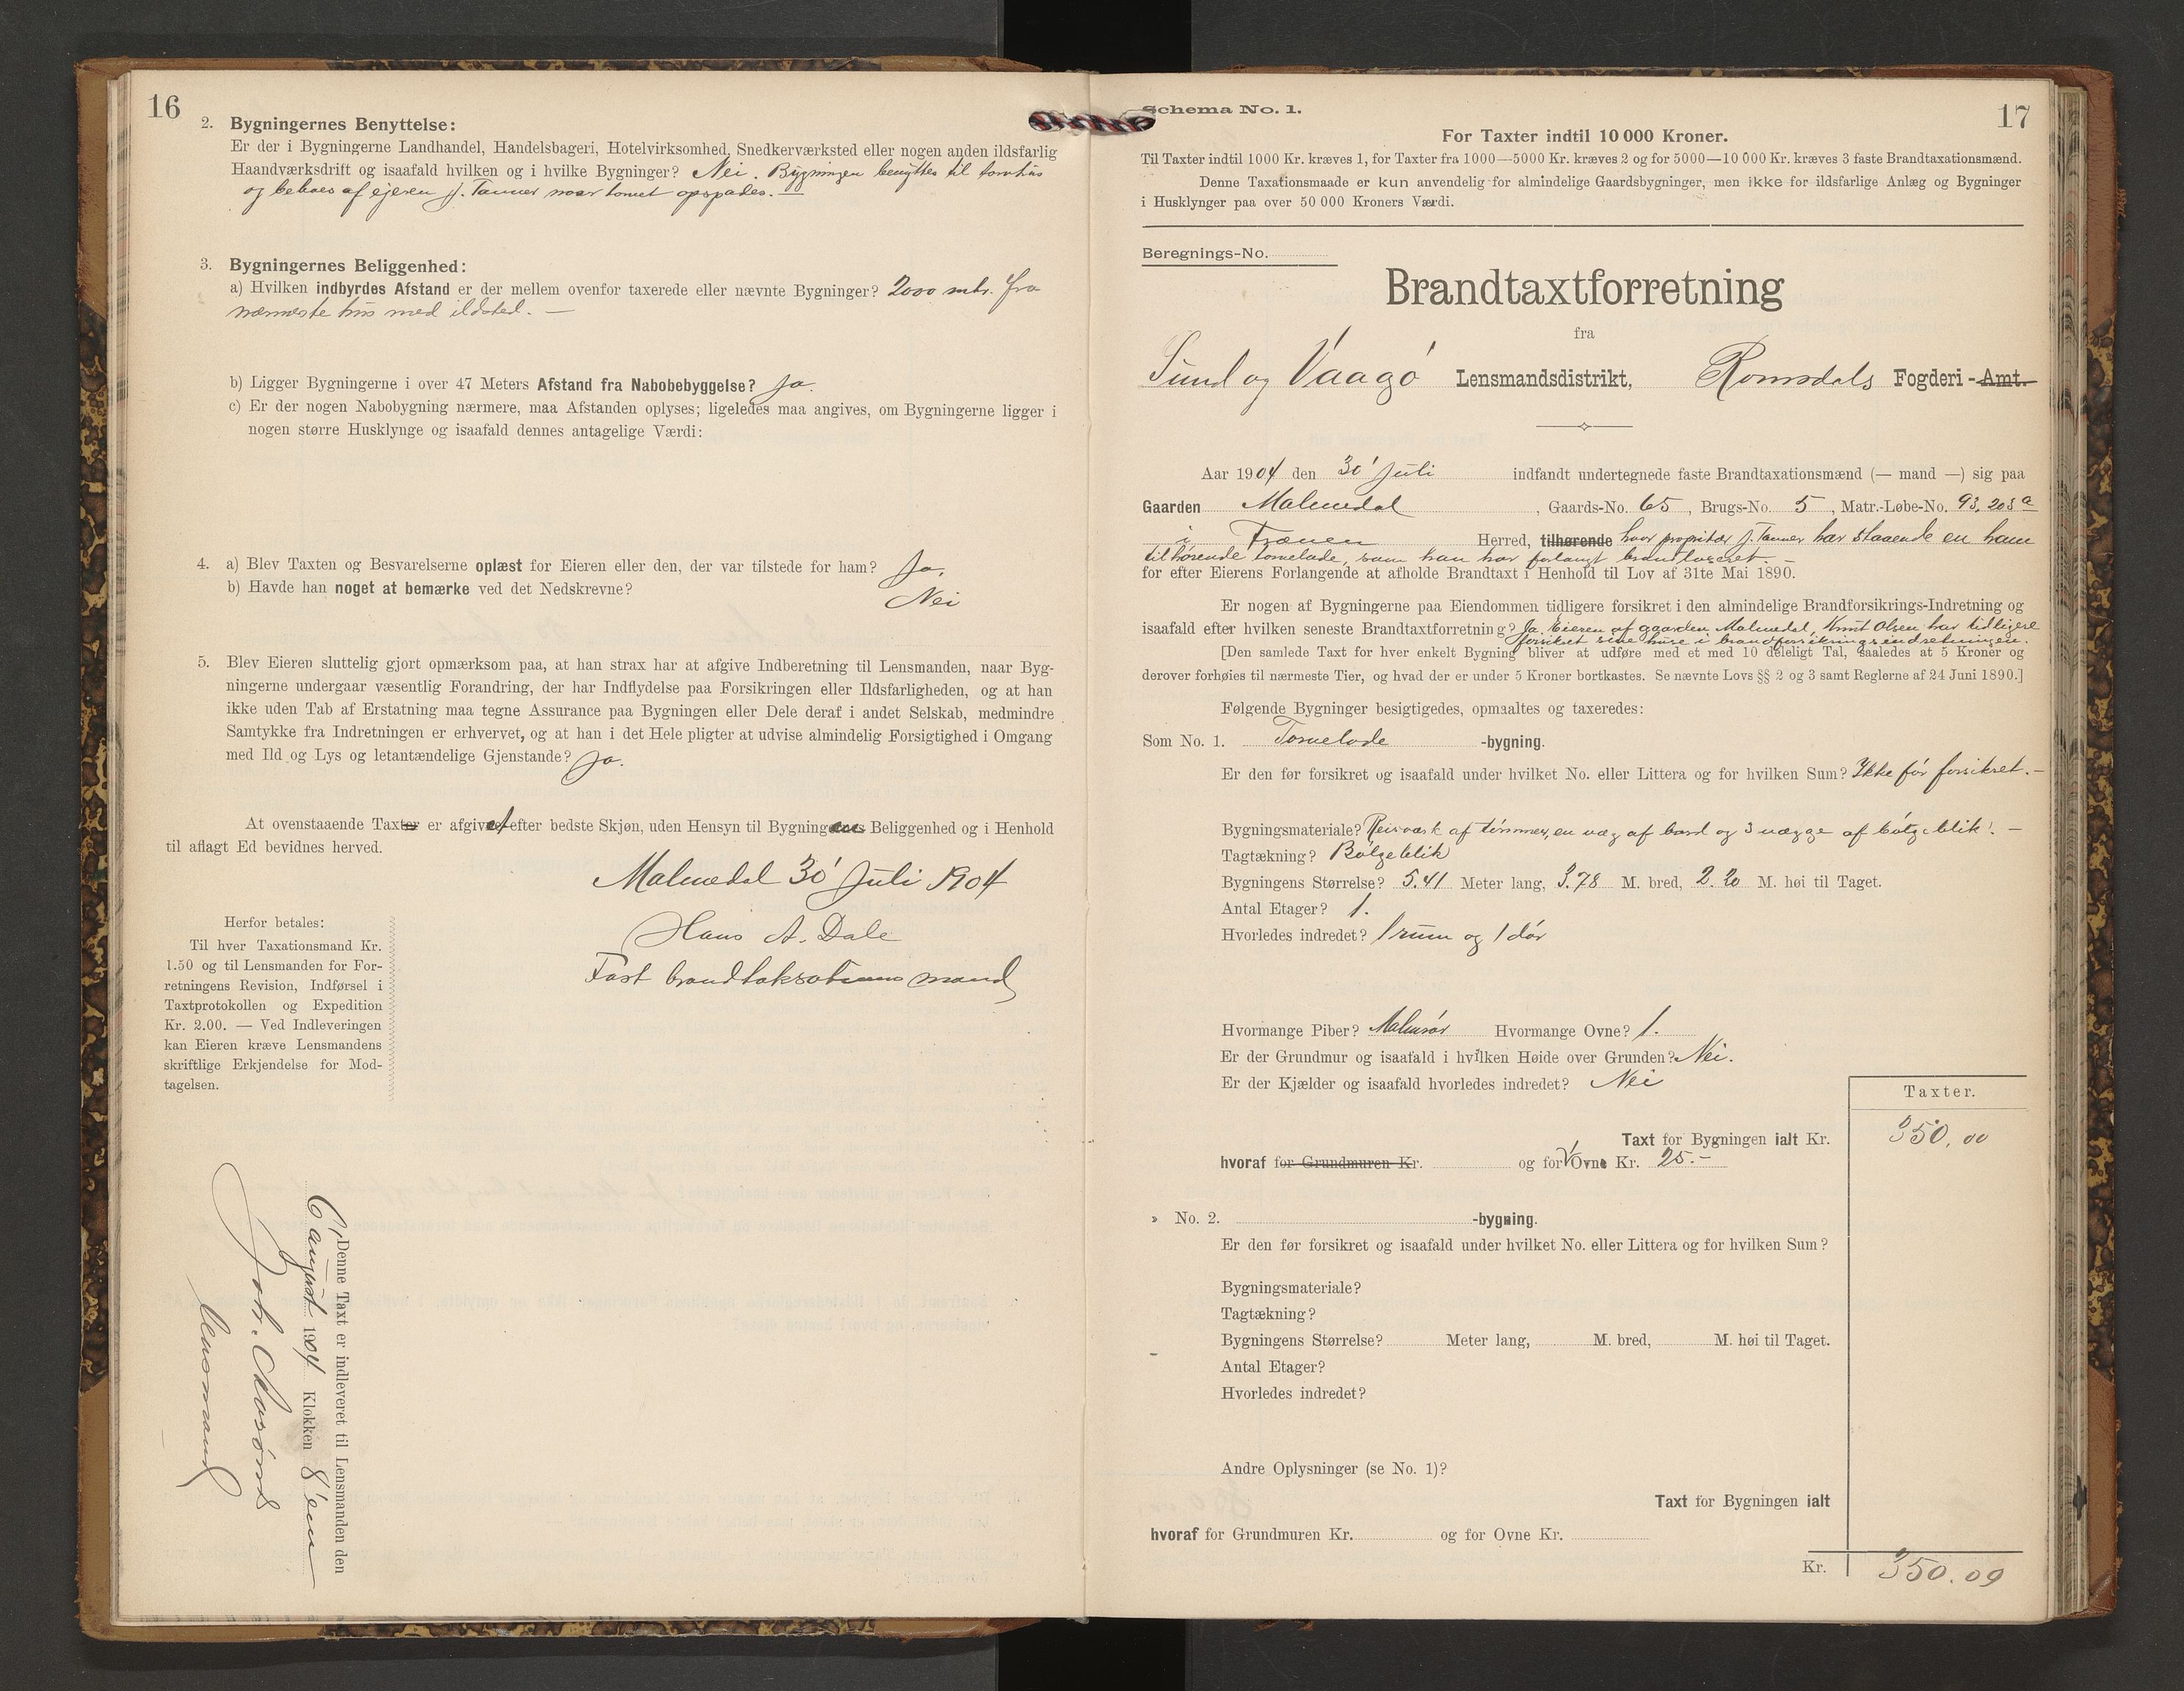 16
2. Bygningernes Benyttelse:
Er der i Bygningerne Landhandel, Handelsbageri, Hotelvirksomhed, Snedkerværksted eller nogen anden ildsfarlig
Haandværksdrift og isaafald hvilken og i hvilke Bygninger? Nei. Bygningen benyttes til torvhus
og beboes af ejeren J. Tanner naar tomet opspades. —
3. Bygningernes Beliggenhed:
a) Hvilken indbyrdes Afstand er der mellem ovenfor taxerede eller nævnte Bygninger? 2000 mtr. fra
nærmeste hus med ildsted. —
b) Ligger Bygningerne i over 47 Meters Afstand fra Nabobebyggelse? Ja.
c) Er der nogen Nabobygning nærmere, maa Afstanden oplyses; ligeledes maa angives, om Bygningerne ligger i
nogen større Husklynge og isaafald dennes antagelige Værdi:
4. a) Blev Taxten og Besvarelserne oplæst for Eieren eller den, der var tilstede for ham? Ja.
b) Havde han noget at bemærke ved det Nedskrevne? Nei
5. Blev Eieren sluttelig gjort opmærksom paa, at han strax har at afgive Indberetning til Lensmanden, naar Byg-
ningerne undergaar væsentlig Forandring, der har Indflydelse paa Forsikringen eller Ildsfarligheden, og at han
ikke uden Tab af Erstatning maa tegne Assurance paa Bygningen eller Dele deraf i andet Selskab, medmindre
Samtykke fra Indretningen er erhvervet, og at han i det Hele pligter at udvise almindelig Forsigtighed i Omgang
med Ild og Lys og letantændelige Gjenstande? Ja.
At ovenstaaende Taxter er afgivet efter bedste Skjøn, uden Hensyn til Bygningens Beliggenhed og i Henhold
til aflagt Ed bevidnes herved.
Malmedal 30' Juli 1904
Hans A. Dale
Fast brandtaksationsmand
Herfor betales:
Til hver Taxationsmand Kr.
1.50 og til Lensmanden for For-
retningens Revision, Indførsel i
Taxtprotokollen og Expedition
Kr. 2.00. — Ved Indleveringen
kan Eieren kræve Lensmandens
skriftlige Erkjendelse for Mod-
tagelsen.
Denne Taxt er indleveret til Lensmanden den
6' august 1904 Klokken 8 em
Joh.
lensmand
17
Schema No. 1.
For Taxter indtil 10 000 Kroner.
Til Taxter indtil 1000 Kr. kræves 1, for Taxter fra 1000—5000 Kr. kræves 2 og for 5000—10 000 Kr. kræves 3 faste Brandtaxationsmænd.
Denne Taxationsmaade er kun anvendelig for almindelige Gaardsbygninger, men ikke for ildsfarlige Anlæg og Bygninger
i Husklynger paa over 50 000 Kroners Værdi.
Beregnings-No.
Brandtaxtforretning
fra
Sund og Vaagø Lensmandsdistrikt, Romsdals Fogderi - Amt.
Aar 1904 den 30' Juli indfandt undertegnede faste Brandtaxationsmænd (— mand —) sig paa
Gaarden Malmedal, Gaards-No. 65, Brugs-No. 5, Matr.-Løbe-No. 93, 203 a
i Frænen Herred, tilhørende hvor proprietær J. Tanner har staaende en ham
tilhørende tornelade, som han har forlangt brandtaxeret. —
for efter Eierens Forlangende at afholde Brandtaxt i Henhold til Lov af 31te Mai 1890.
Er nogen af Bygningerne paa Eiendommen tidligere forsikret i den almindelige Brandforsikrings-Indretning og
isaafald efter hvilken seneste Brandtaxtforretning? Ja. Eieren af gaarden Malmedal, Knut Olsen har tidligere
forsikret sine huse i brandforsikringsindretningen.
[Den samlede Taxt for hver enkelt Bygning bliver at udføre med et med 10 deleligt Tal, saaledes at 5 Kroner og
derover forhøies til nærmeste Tier, og hvad der er under 5 Kroner bortkastes. Se nævnte Lovs §§ 2 og 3 samt Reglerne af 24 Juni 1890.]
Følgende Bygninger besigtigedes, opmaaltes og taxeredes:
Som No. 1. Tornelade -bygning.
Er den før forsikret og isaafald under hvilket No. eller Littera og for hvilken Sum? Ikke før forsikret. —
Bygningsmateriale? Reisværk af tømmer, en væg af bord og 3 vægge af bølgeblik. —
Tagtækning? Bølgeblik
Bygningens Størrelse? 5.41 Meter lang, 3.78 M. bred, 2.20 M. høi til Taget.
Antal Etager? 1.
Hvorledes indredet? 1 rum og 1 dør
Hvormange Piber? Malmrør Hvormange Ovne? 1.
Er der Grundmur og isaafald i hvilken Høide over Grunden? Nei.
Er der Kjælder og isaafald hvorledes indredet? Nei
Taxter.
Taxt for Bygningen ialt Kr. 350.00
hvoraf for Grundmuren Kr. og for Ovne Kr. 25.—
» No. 2. -bygning.
Er den før forsikret og isaafald under hvilket No. eller Littera og for hvilken Sum?
Bygningsmateriale?
Tagtækning?
Bygningens Størrelse? Meter lang, M. bred, M. høi til Taget.
Antal Etager?
Hvorledes indredet?
Andre Oplysninger (se No. 1)?
Taxt for Bygningen ialt
hvoraf for Grundmuren Kr. og for Ovne Kr.
Kr. 350.00